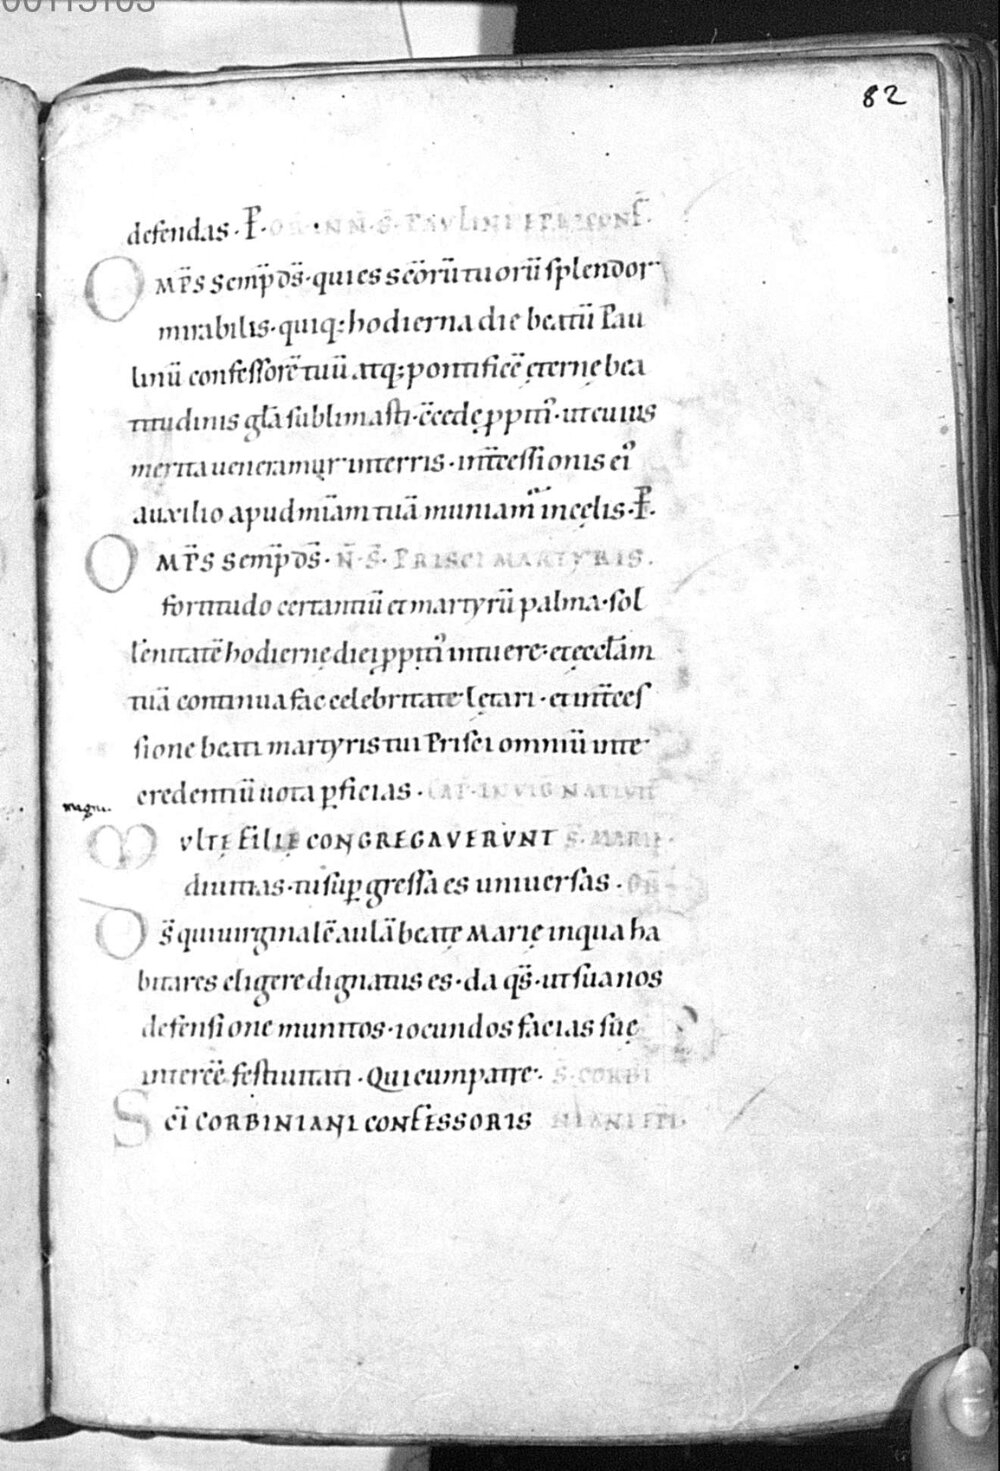 00113103
82
defendas · P̄ · OR̄ · IN N̄ · S̄ · PAVLINI EPI ⁊ CONF̄.
OMP̄S semp̄ ds̄ · qui es sc̄orū tuorū splendor
mirabilis · quiq; hodierna die beatū Pau
linū confessorē tuū atq; pontificē ęternę bea
titudinis gl̄a sublimasti · c̄cedę ppitiꝰ · ut cuius
merita ueneramur in terris · int̄cessionis eiꝰ
auxilio apud mīam tuā muniam̄ in cęlis · P̄ ·
OMP̄S semp̄ ds̄ · N̄ · S̄ · PRISCI MARTYRIS .
fortitudo certantiū et martyrū palma · sol
lēnitatē hodiernę diei ppitiꝰ intuere · et ęccl̄am
tuā continua fac celebritate lętari · et int̄ces
sione beati martyris tui Prisci omniū in te
credentiū uota pficias · CAP̄ · IN VIG̅ NATIVIT̄
magni.
MVLTĘ FILIĘ CONGREGAVERVNT S̄ · MARIĘ ·
diuitias · tu sup gressa es uniuersas · OR̄
DS̄ qui uirginalē aulā beatę Marię in qua ha
bitares eligere dignatus es · da qs̄ · ut sua nos
defensione munitos · iocundos facias suę
interēē festiuitati · Qui cum patre · S̄ · CORBI
SCĪ CORBINIANI CONFESSORIS NIANI EP̄I ·